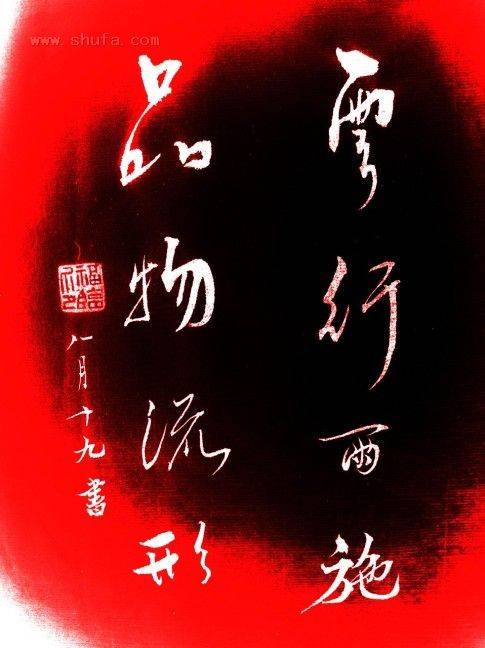 雲行雨施
品物流形
八月十九書
www.shufa.com